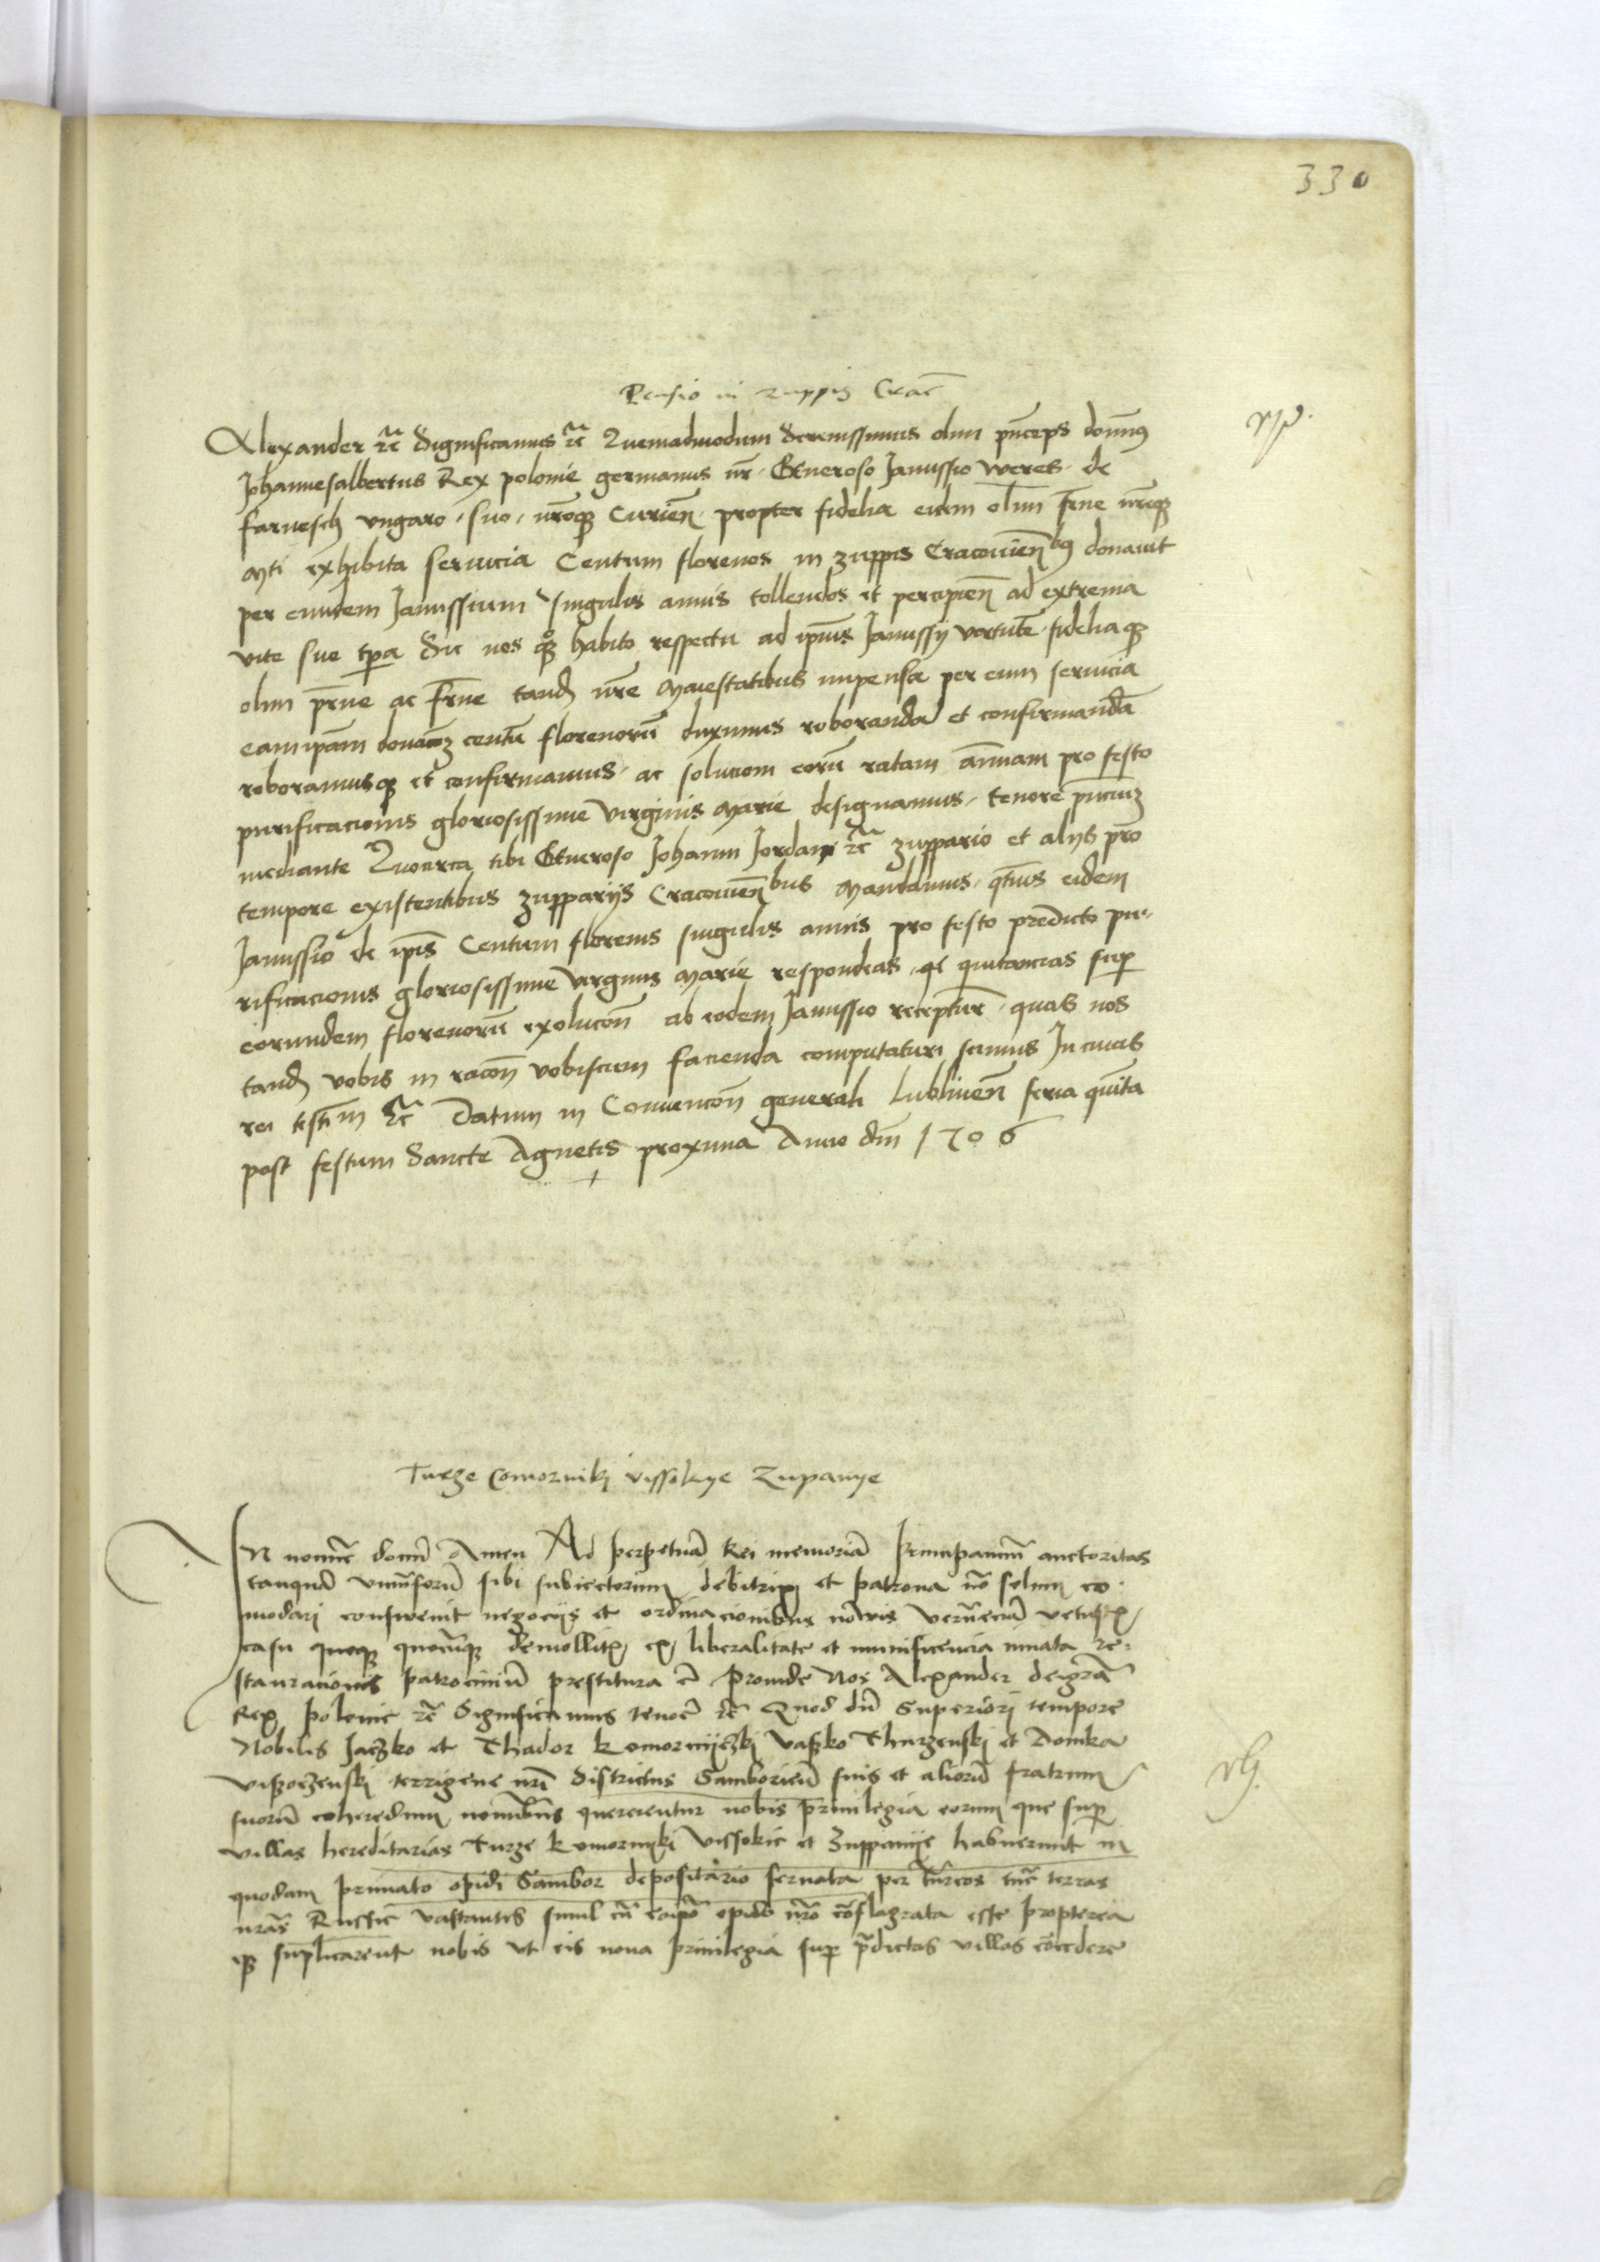 330
Pensio in zuppis Crac
Alexander etc Significamus etc Quemadmodum Serenissimus olim pnceps domnus
Johannesalbertus Rex polonie germanus nr Generoso Janussio weres de
farnesch vngaro suo nroque Curien propter fidelia eidem olim frne nreque
Mti exhibita seruicia Centum florenos in zuppis Cracouienbus donauit
per eundem Janussium singulis annis tollendos et percipien ad extrema
vite sue tpa Sic nos quoque habito respectu ad ipius Janussij vertute fidelia que
olim prne ac frne tand nre Maiestatibus impensa per eum seruicia
eam ipam donacoz centu florenoru duximus roboranda et confirmanda
roboramusque et confirmamus ac solucom eoru ratam annuam pro festo
purificacionis gloriosissime virginis Marie designamus tenore pntiuz
mediante Quocirca tibi Generoso Johanni Jordan etc zuppario et alys pro
tempore existentibus zupparijs Cracouienbus Mandamus qtnus eidem
Janussio de ipis Centum florenis singulis annis pro festo predicto pu-
rificacionis gloriosissime virginis Marie respondeas et quitancias sup
eorundem florenoru exolucon ab eodem Janussio receptur quas nos
tand vobis in racon vobiscum facienda computaturi sumus In cuius
rei testim etc Datum in Conuencon generali Lublinen feria quinta
post festum Sancte Agnetis proxima Anno dni 1506
Turze Comorniki vissokye Zupanye
IN nomie domi Amen Ad perpetua Rei memoria Principantium auctoritas
tanqua vniuersoru sibi subiectorum debitrix et patrona no solum co-
modari consweuit negocijs et ordinacionibus nowis verueciam vetustis
casu quoque quocunque demollitis ex liberalitate et munificencia innata re-
stauracionis patrociniu prestitura e Proinde Nos Alexander dei gra
Rex Polonie etc Significamus tenore etc Quod du Superiori tempore
Nobilis Jaczko et Thador Komornijczki Vasko Thurzenski et Domka
Visoczenski terrigene nri districtus Samborien suis et alioru fratrum
suoru coheredum nominibus quererentur nobis priuilegia eorum que sup
villas hereditarias Turze Komorniki Vissokie et Zuppanije habuerunt in
quodam priuato opidi Sambor depositario seruata per turcos tunc terras
nras Russie vastantes simul cu eodem opido nro conflagrata esse Propterea
que suplicarent nobis vt eis noua priuilegia sup pdictas villas concedere